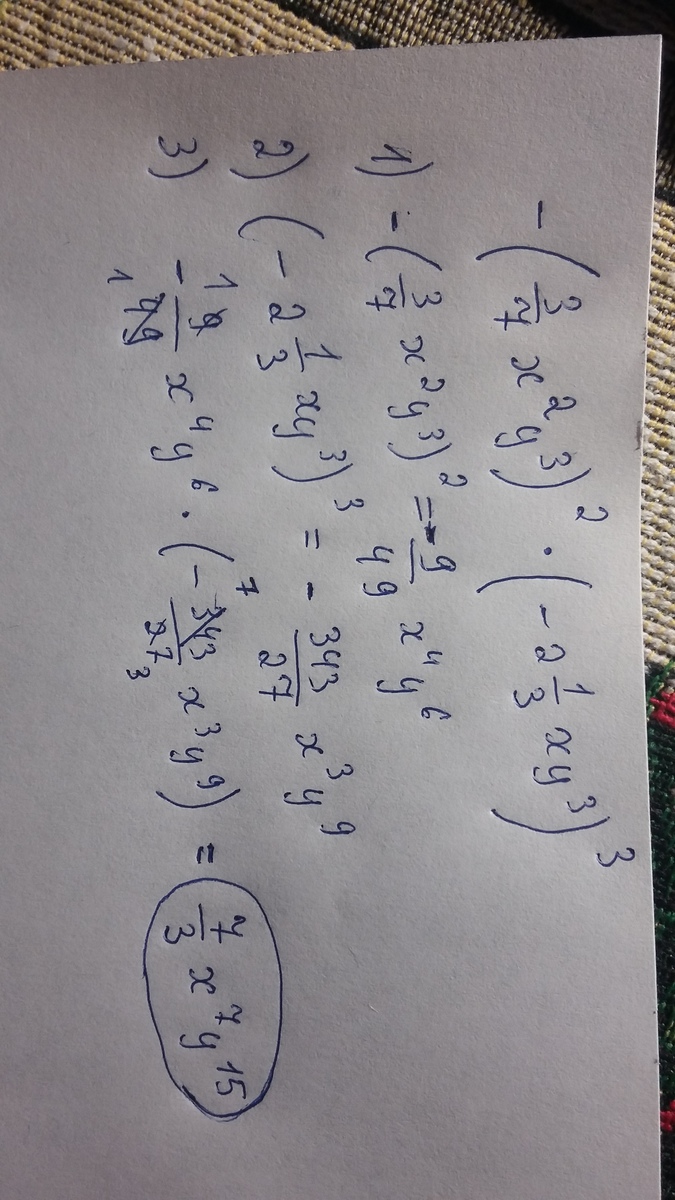 -(3/7 x²y³)² · (-2 1/3 xy³)³
1) -(3/7 x²y³)² = -9/49 x⁴y⁶
2) (-2 1/3 xy³)³ = -343/27 x³y⁹
3) -¹9/₁49 x⁴y⁶ · (-⁷343/27₃ x³y⁹) = 7/3 x⁷y¹⁵